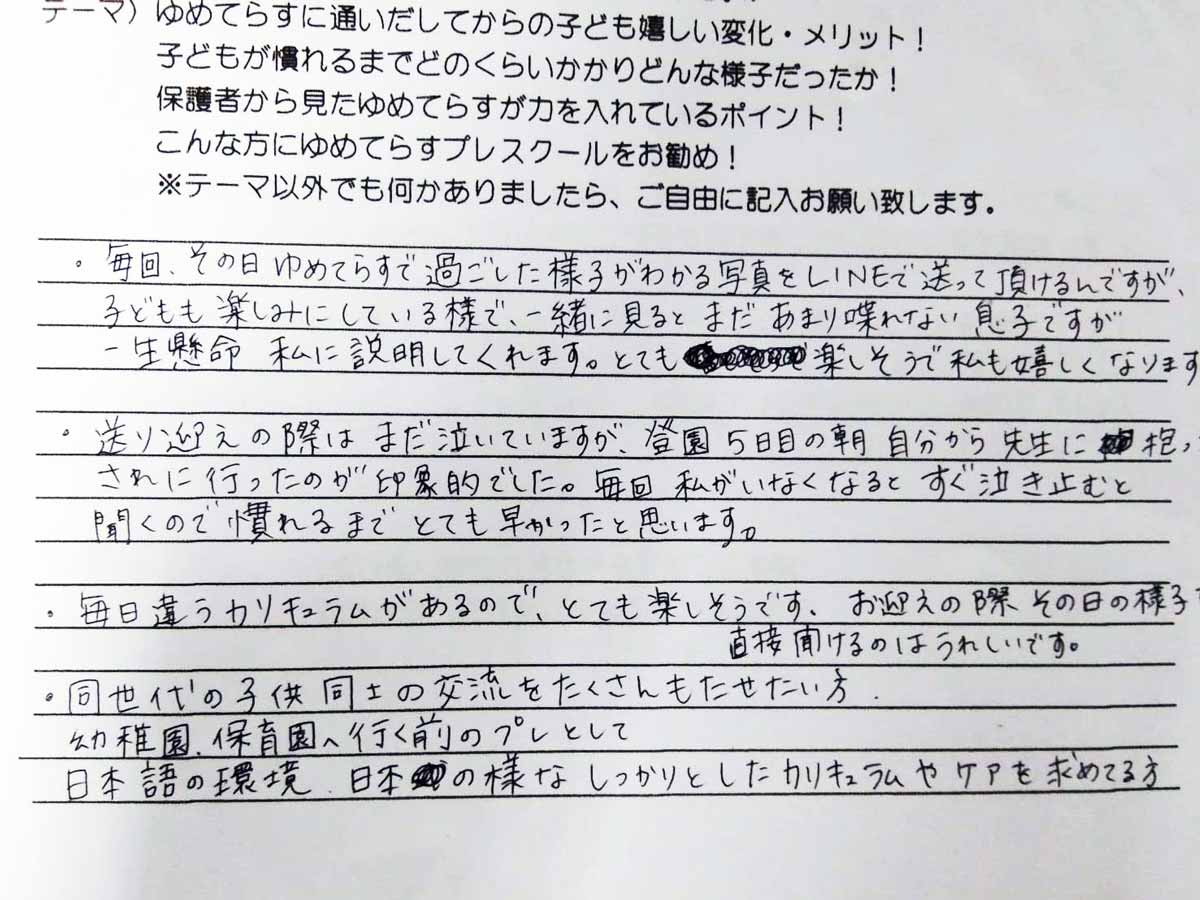 テーマ）ゆめてらすに通いだしてからの子ども嬉しい変化・メリット！
子どもが慣れるまでどのくらいかかりどんな様子だったか！
保護者から見たゆめてらすが力を入れているポイント！
こんな方にゆめてらすプレスクールをお勧め！
※テーマ以外でも何かありましたら、ご自由に記入お願い致します。
・毎回、その日ゆめてらすで過ごした様子がわかる写真をLINEで送って頂けるんですが、
子どもも楽しみにしている様で、一緒に見るとまだあまり喋れない息子ですが
一生懸命私に説明してくれます。とても楽しそうで私も嬉しくなります
・送り迎えの際はまだ泣いていますが、登園5日目の朝自分から先生に抱っ
されに行ったのが印象的でした。毎回私がいなくなるとすぐ泣き止むと
聞くので慣れるまでとても早かったと思います。
・毎日違うカリキュラムがあるので、とても楽しそうです、お迎えの際その日の様子
直接聞けるのはうれしいです。
・同世代の子供同士の交流をたくさんもたせたい方、
幼稚園、保育園へ行く前のプレとして
日本語の環境、日本の様なしっかりとしたカリキュラムやケアを求めてる方